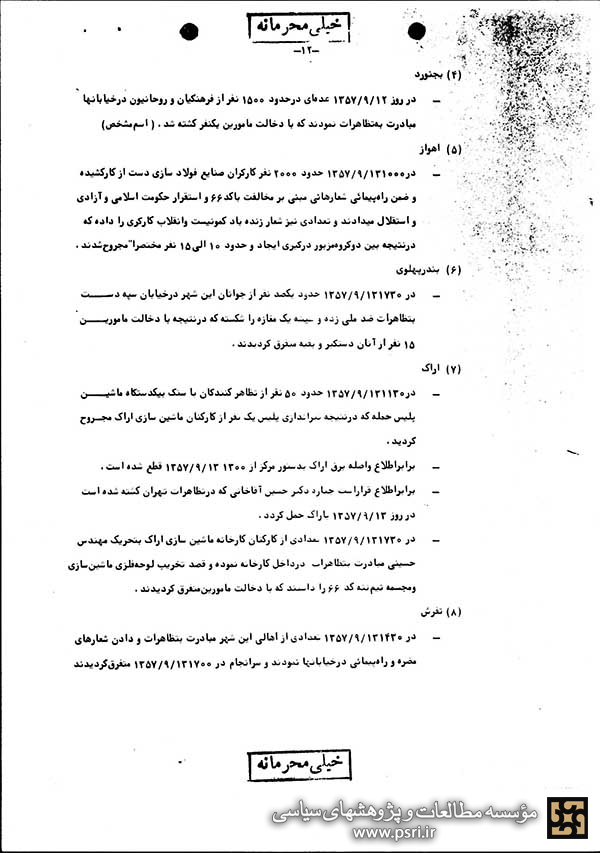 خیلی محرمانه
-۱۲-
(۴) بجنورد
– در روز ۱۳۵۷/۹/۱۲ عده‌ای درحدود ۱۵۰۰ نفر از فرهنگیان و روحانیون درخیابانها
مبادرت به‌تظاهرات نمودند که با دخالت مامورین یکنفر کشته شد . ( اسم‌مشخص)
(۵) اهواز
– در ۱۳۵۷/۹/۱۳۱۰۰۰ حدود ۲۰۰۰ نفر کارکران صنایع فولاد سازی دست از کارکشیده
و ضمن راه‌پیمائی شعارهائی مبنی بر مخالفت باکد ۶۶ و استقرار حکومت اسلامی و آزادی
و استقلال میدادند و تعدادی نیز شعار زنده باد کمونیست وانقلاب کارکری را داده که
درنتیجه بین دوکروه‌مزبور درکیری ایجاد و حدود ۱۰ الی ۱۵ نفر مختصراً مجروح‌شدند .
(۶) بندرپهلوی
– در ۱۳۵۷/۹/۱۲۱۷۳۰ حدود یکصد نفر از جوانان این شهر درخیابان سپه دست
بتظاهرات ضد ملی زده و شیشه یک مغازه را شکسته که درنتیجه با دخالت مامورین
۱۵ نفر از آنان دستکیر و بقیه متفرق کردیدند .
(۷) اراک
– در ۱۳۵۷/۹/۱۳۱۱۳۰ حدود ۵۰ نفر از تظاهر کنندکان با سنک بیکدستکاه ماشین
پلیس حمله که درنتیجه تیراندازی پلیس یک نفر از کارکنان ماشین سازی اراک مجروح
کردید .
– برابراطلاع واصله برق اراک بدستور مرکز از ۱۳۰۰ ۱۳۵۷/۹/۱۳ قطع شده است .
– برابراطلاع قراراست جنازه دکتر حسین آقاخانی که درتظاهرات تهران کشته شده است
در روز ۱۳۵۷/۹/۱۳ باراک حمل کردد .
– در ۱۳۵۷/۹/۱۲۱۷۳۰ تعدادی از کارکنان کارخانه ماشین سازی اراک بتحریک مهندس
حسینی مبادرت بتظاهرات درداخل کارخانه نموده و قصد تخریب لوحه‌فلزی ماشین‌سازی
ومجسمه نیم‌تنه کد ۶۶ را داشتند که با دخالت مامورین‌متفرق کردیدند .
(۸) تفرش
– در ۱۳۵۷/۹/۱۲۱۴۳۰ تعدادی از اهالی این شهر مبادرت بتظاهرات و دادن شعارهای
مضره و راه‌پیمائی درخیابانها نمودند و سرانجام در ۱۳۵۷/۹/۱۲۱۷۰۰ متفرق‌کردیدند
خیلی محرمانه
مؤسسه مطالعات و پژوهشهای سیاسی
www.psri.ir